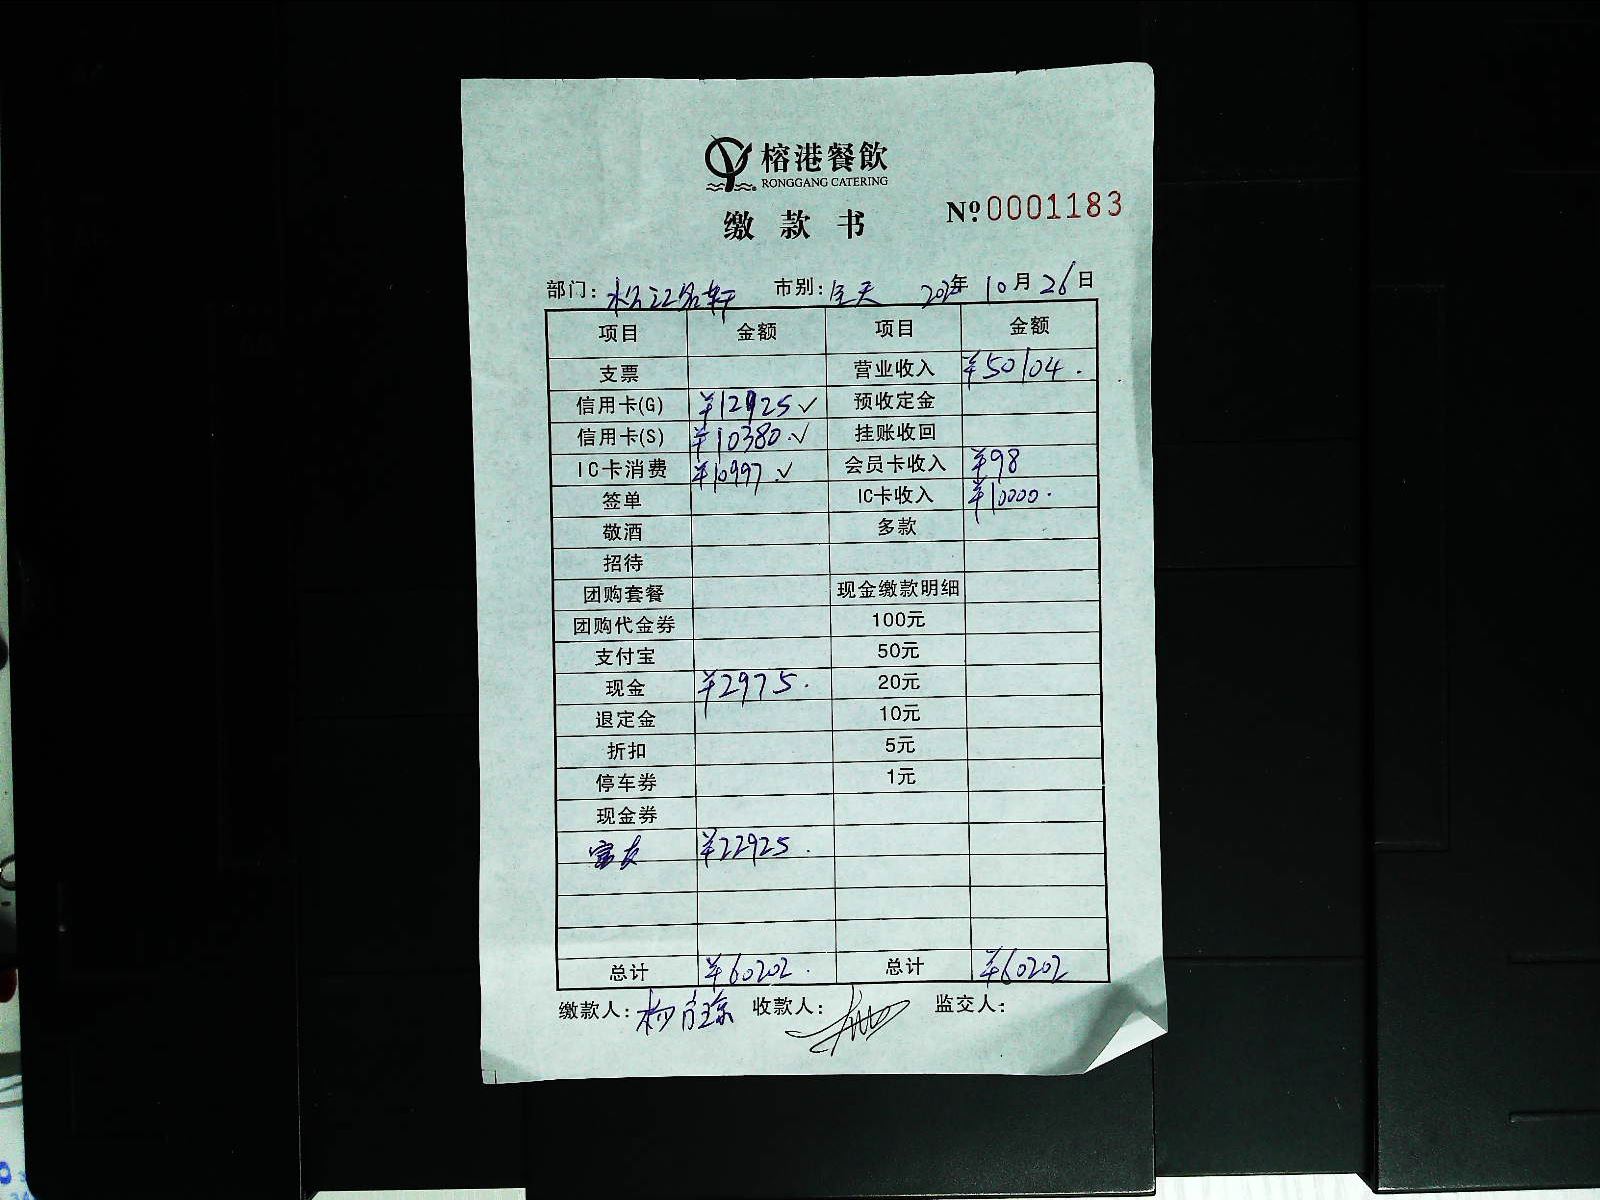 榕港餐飲
RONGGANG CATERING
缴款书
Nº 0001183
部门：松江名轩 市别：全天 年10月26日
项目 金额 项目 金额
支票 营业收入 ¥50104.
信用卡(G) ¥12925 ✓ 预收定金
信用卡(S) ¥10380. ✓ 挂账收回
IC卡消费 ¥10997. ✓ 会员卡收入 ¥98
签单 IC卡收入 ¥10000.
敬酒 多款
招待
团购套餐 现金缴款明细
团购代金券 100元
支付宝 50元
现金 ¥2975. 20元
退定金 10元
折扣 5元
停车券 1元
现金券
富友 ¥22925.
总计 ¥60202. 总计 ¥60202
缴款人： 收款人： 监交人：